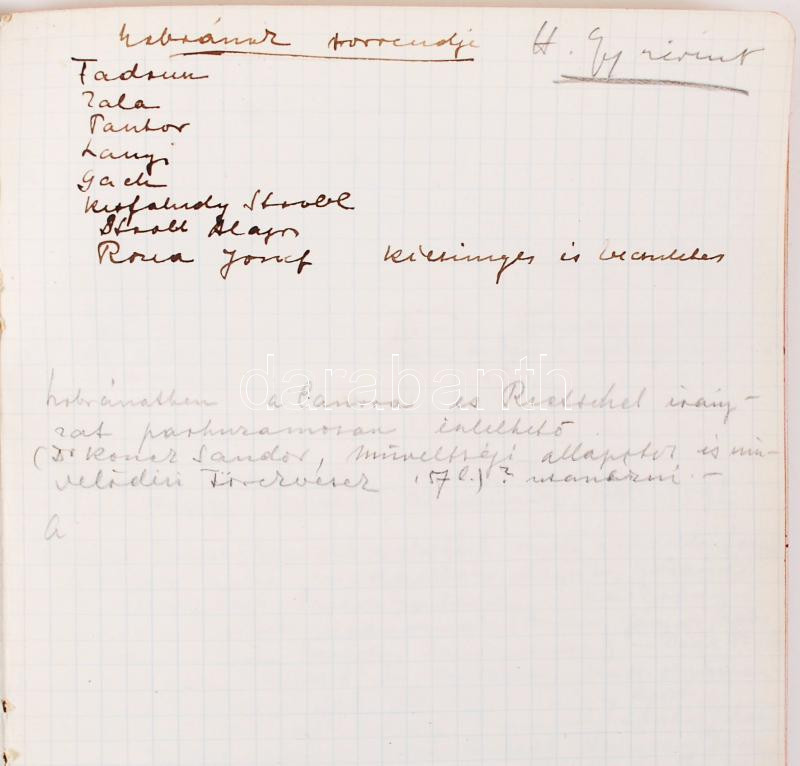 szobrának sorrendje H. Gy szerint
Fadrusz
Zala
Pantor
Lányi
Gách
Kisfaludy Strobl
Strobl Alajos
Rona József kicsinyes is becsületes
szobránatben a Canova és Rietschel irány-
zat párhuzamosan észlelhető
(Dr Koncz Sándor, műveltségi állapotok is mű-
velődési Törekvések 157 l.) ?
A
darabanth